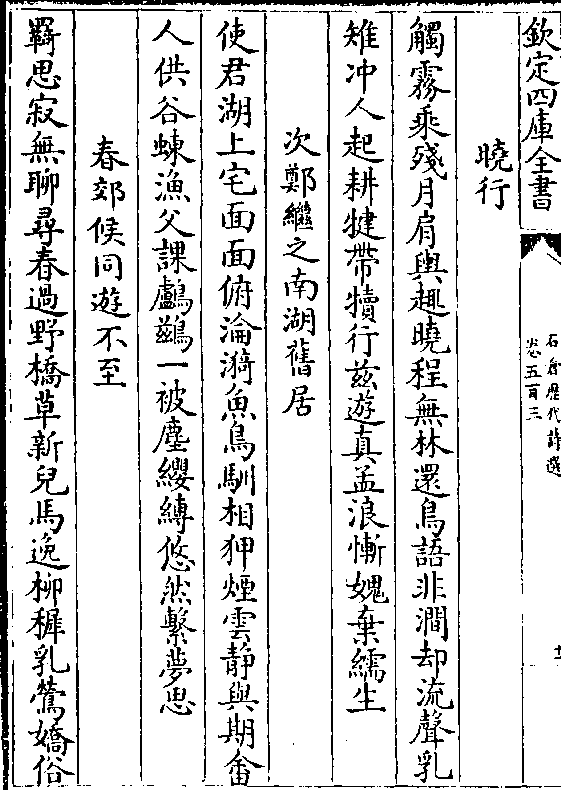 欽定四庫全書
石倉歷代詩選
卷五百三
十
曉行
觸霧乘殘月肩輿趣曉程無林還鳥語非澗却流聲乳
雉冲人起耕犍帶犢行兹遊真孟浪慚媿棄繻生
次鄭繼之南湖舊居
使君湖上宅面面俯淪漪魚鳥馴相狎煙雲靜與期畬
人供谷蝀漁父課鸕鷀一被塵纓縳悠然繫夢思
春郊候同遊不至
羇思寂無聊尋春過野橋草新兒馬逸柳穉乳鶯嬌俗